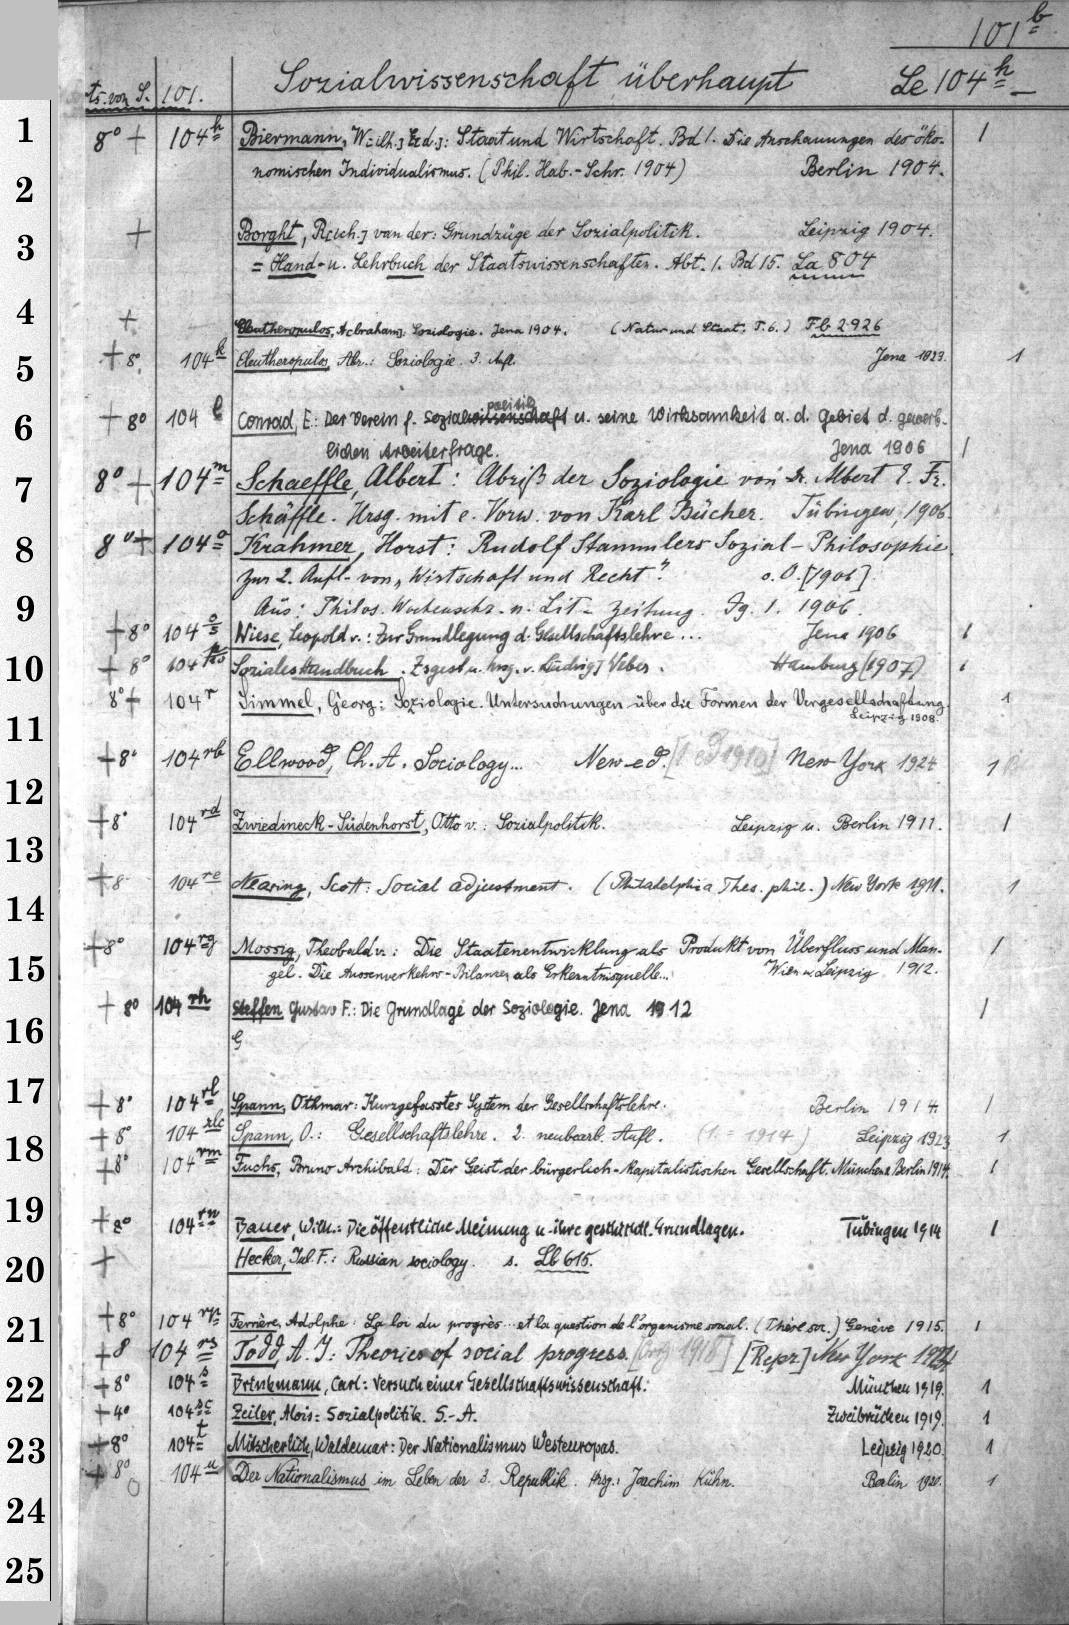 101 b
ts. von S. 101. Sozialwissenschaft überhaupt Le 104 h
1 8° + 104 h Biermann, W[ilh.] Ed.]: Staat und Wirtschaft. Bd 1. Die Anschauungen des öko- 1
2 nomischen Individualismus. (Phil. Hab.-Schr. 1904) Berlin 1904.
3 + Borght, R[ich.] van der: Grundzüge der Sozialpolitik. Leipzig 1904.
= Hand- u. Lehrbuch der Staatswissenschaften. Abt. 1. Bd 15. La 804
4 + Eleutheropulos, A[braham]. Soziologie. Jena 1904. (Natur und Staat. T. 6.) Fb 2926
5 + 8°. 104 k Eleutheropulos, Abr.: Soziologie. 3. Aufl. Jena 1923. 1
politik
6 + 8° 104 l Conrad, E.: Der Verein f. Sozialwissenschaft u. seine Wirksamkeit a. d. Gebiet d. gewerb-
lichen Arbeiterfrage. Jena 1906 1
7 8° + 104 m Schaeffle, Albert: Abriß der Soziologie von Dr. Albert E. Fr.
Schäffle. Hrsg. mit e. Vorw. von Karl Bücher. Tübingen, 1906
8 8° + 104 o Krahmer, Horst: Rudolf Stammlers Sozial-Philosophie
zur 2. Aufl. von „Wirtschaft und Recht". o. O. [1906]
9 Aus: Philos. Wochenschr. u. Lit-Zeitung. Jg. 1. 1906.
+ 8° 104 o/5 Wiese, Leopold v.: Zur Grundlegung d. Gesellschaftslehre... Jena 1906 1
10 + 8° 104 Soziales Handbuch. Zsgest. u. hrsg. v. Ludwig] Weber. Hamburg (1907) 1
8° + 104 r Simmel, Georg: Soziologie. Untersuchungen über die Formen der Vergesellschaftung. 1
11 Leipzig 1908.
+ 8° 104 rb Ellwood, Ch. A. Sociology... New ed. [1 ed 1910] New York 1924 1
12
+ 8° 104 rd Zwiedineck-Südenhorst, Otto v.: Sozialpolitik. Leipzig u. Berlin 1911. 1
13
+ 8° 104 re Nearing, Scott: Social adjustment. (Philadelphia Thes. phil.) New York 1911. 1
14
+ 8° 104 rg Mossig, Theobald v.: Die Staatenentwicklung als Produkt von Überfluss und Man- 1
15 gel. Die Aussenverkehrs-Bilanzen als Erkenntnisquelle... Wien u. Leipzig 1912.
+ 8° 104 rh Steffen, Gustav F.: Die Grundlage der Soziologie. Jena 1912 1
16 G
17 + 8° 104 rl Spann, Othmar: Kurzgefasstes System der Gesellschaftslehre. Berlin 1914. 1
18 + 8° 104 rlc Spann, O.: Gesellschaftslehre. 2. neubearb. Aufl. (1. = 1914) Leipzig 1923 1
+ 8° 104 rm Fuchs, Bruno Archibald: Der Geist der bürgerlich-kapitalistischen Gesellschaft. München & Berlin 1914. 1
19 + 8° 104 rn Bauer, Wilh.: Die öffentliche Meinung u. ihre geschichtl. Grundlagen. Tübingen 1914 1
20 + Hecker, Jul. F.: Russian sociology. s. Lb 615.
21 + 8° 104 rp Ferrière, Adolphe: La loi du progrès... et la question de l'organisme social. (Thèse soc.) Genève 1915. 1
+ 8 104 rs Todd, A. J.: Theories of social progress. [Orig 1918] [Repr] New York 1924
22 + 8° 104 s Brinkmann, Carl: Versuch einer Gesellschaftswissenschaft. München 1919. 1
+ 4° 104 sc Zeiler, Alois: Sozialpolitik. S.-A. Zweibrücken 1919. 1
23 + 8° 104 t Mitscherlich, Waldemar: Der Nationalismus Westeuropas. Leipzig 1920. 1
+ 8° 104 u Der Nationalismus im Leben der 3. Republik. Hrsg.: Joachim Kühn. Berlin 1920. 1
24
25